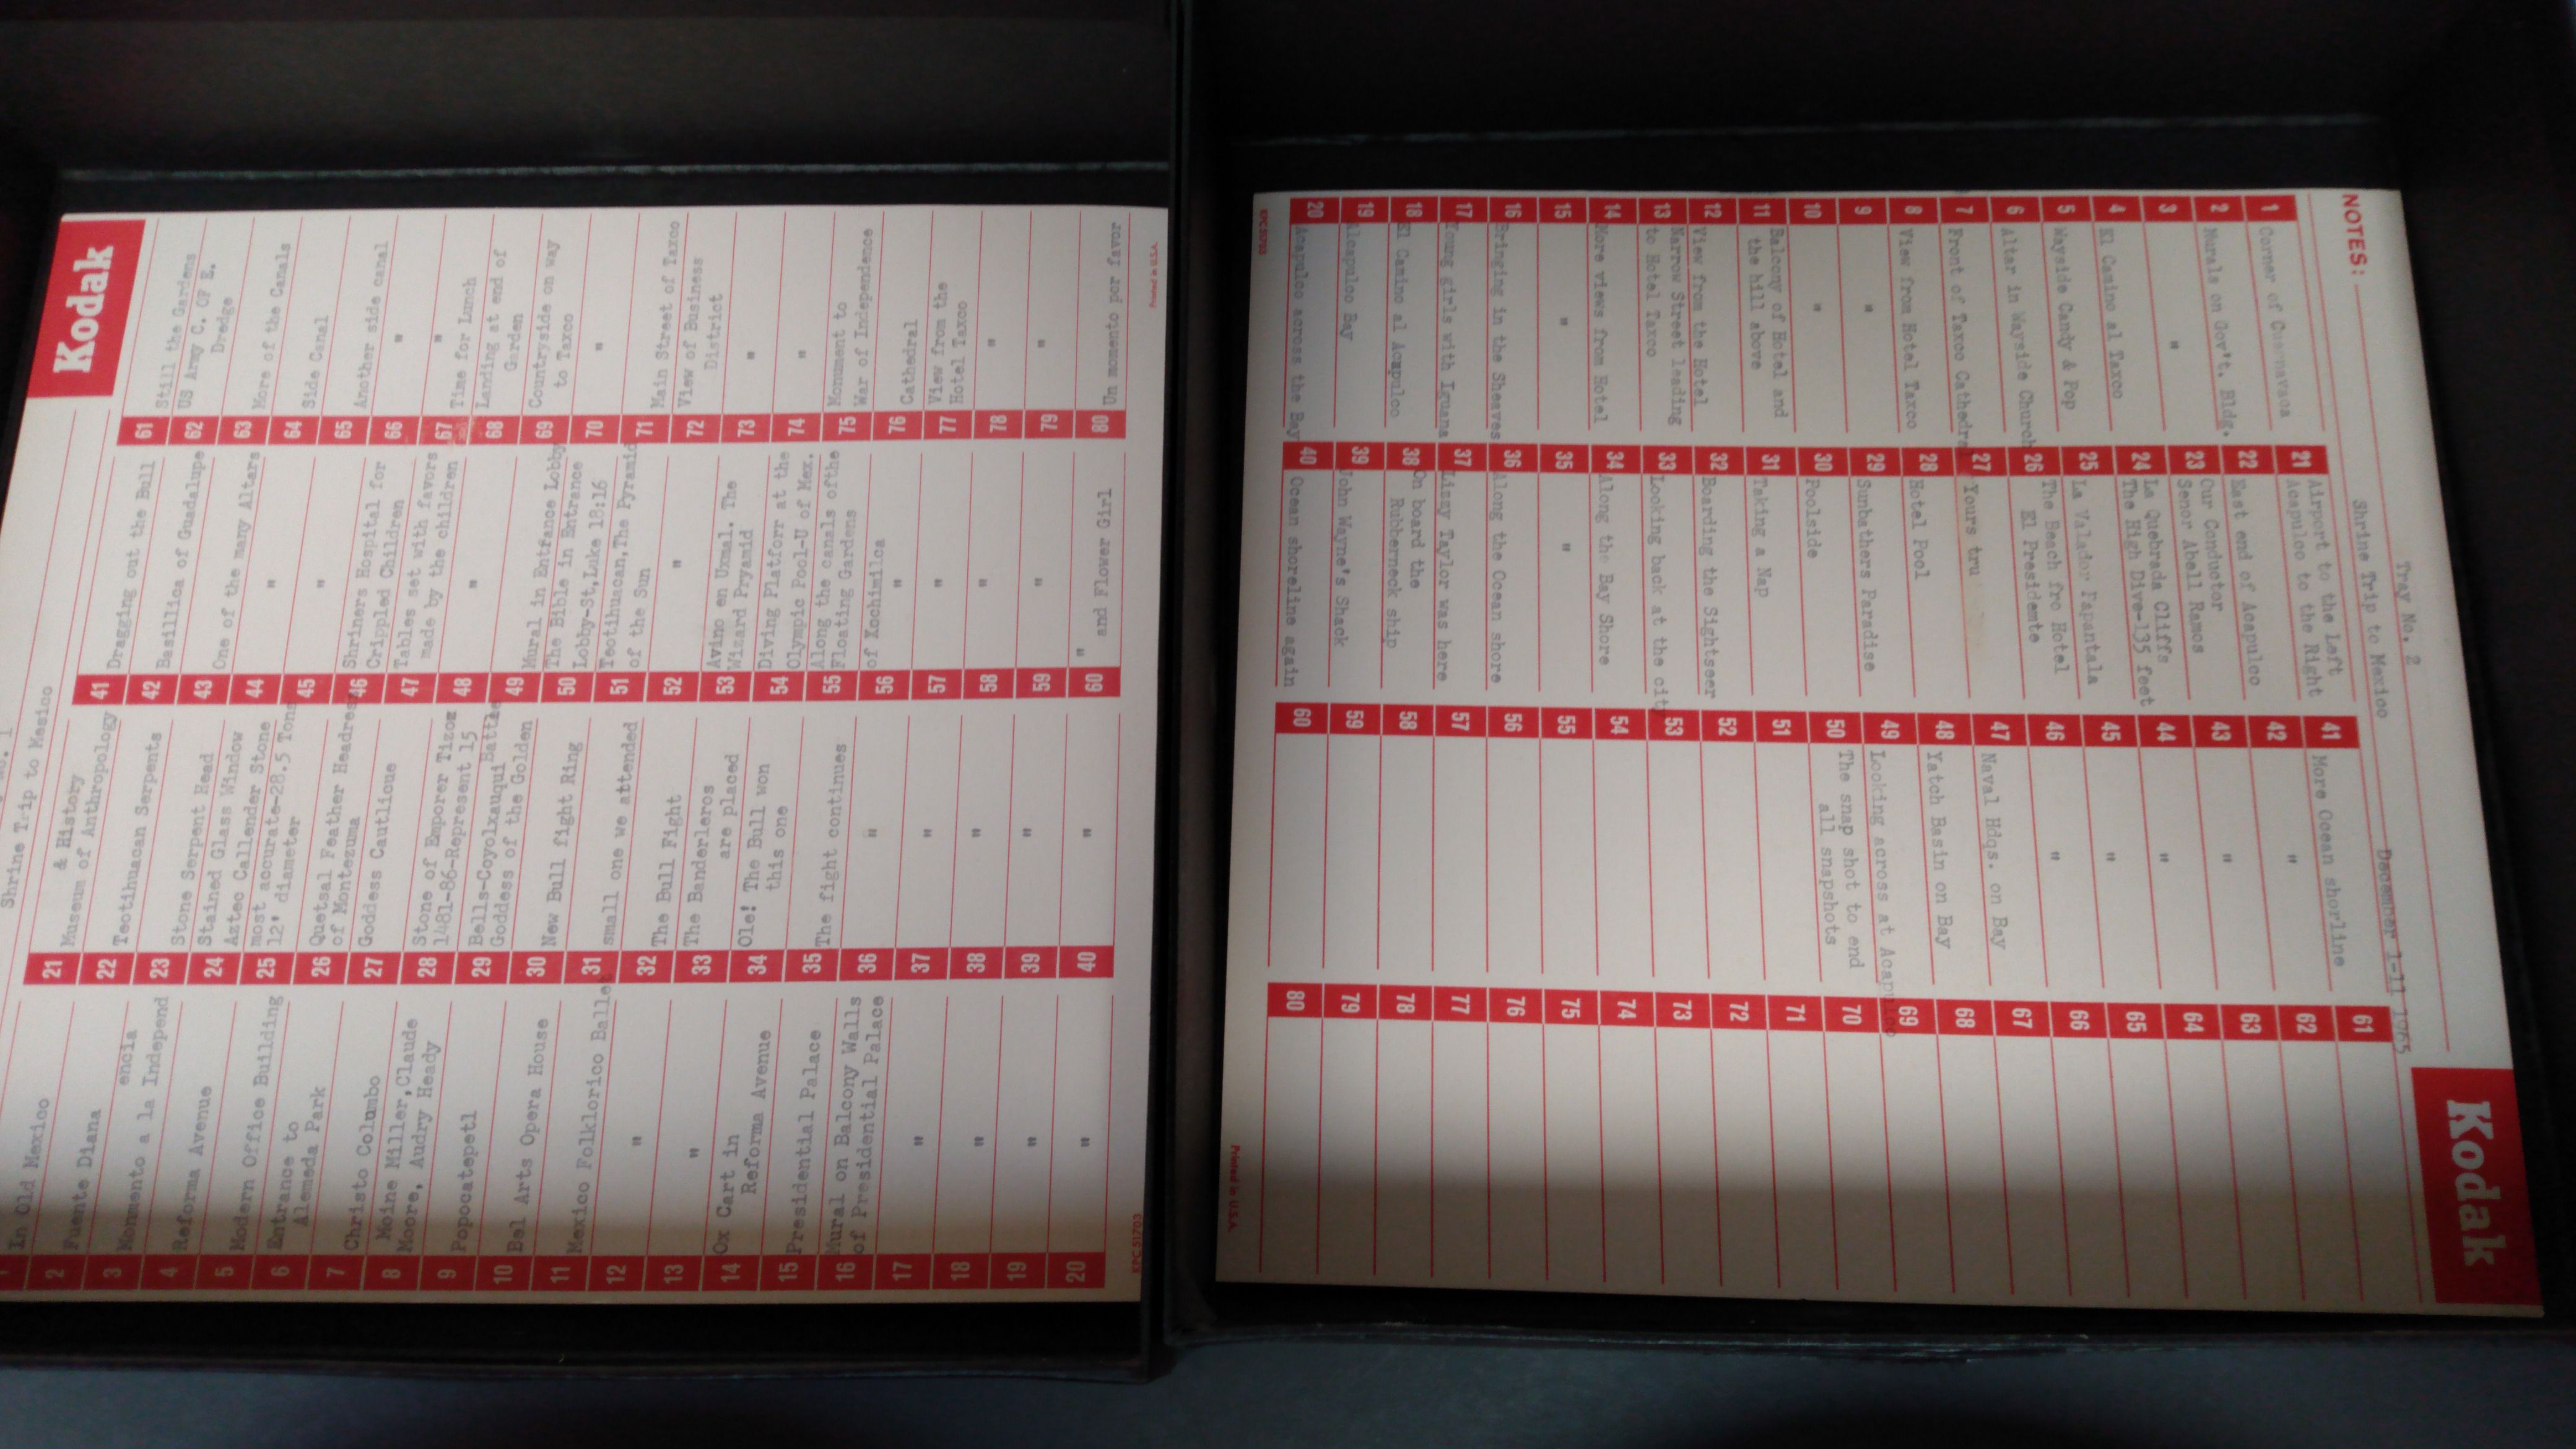 Kodak
Shrine Trip to Mexico
1 In Old Mexico
2 Fuente Diana
3 Monmento a la Independ
encia
4 Reforma Avenue
5 Modern Office Building
6 Entrance to
Alemeda Park
7 Christo Columbo
8 Moine Miller, Claude
Moore, Audry Heady
9 Popocatepetl
10 Bel Arts Opera House
11 Mexico Folklorico Ballet
12 "
13 "
14 Ox Cart in
Reforma Avenue
15 Presidential Palace
16 Mural on Balcony Walls
of Presidential Palace
17 "
18 "
19 "
20 "
21 Museum of Anthropology
& History
22 Teotihuacan Serpents
23 Stone Serpent Head
24 Stained Glass Window
Aztec Callender Stone
25 most accurate-28.5 Tons
12' diameter
26 Quetsal Feather Headress
of Montezuma
27 Goddess Cautlicue
28 Stone of Emporer Tizoc
1481-86-Represent 15
Battle
29 Bells-Coyolxauqui
Goddess of the Golden
30 New Bull fight Ring
31 small one we attended
32 The Bull Fight
33 The Banderleros
are placed
34 Ole! The Bull won
this one
35 The fight continues
36 "
37 "
38 "
39 "
40 "
41 Dragging out the Bull
42 Basillica of Guadalupe
43 One of the many Altars
44 "
45 "
46 Shriners Hospital for
Crippled Children
47 Tables set with favors
made by the children
48 "
49 Mural in Entrance Lobby
50 The Bible in Entrance
Lobby-St,Luke 18:16
51 Teotihuacan,The Pyramid
of the Sun
52 "
53 Avino en Uxmal. The
Wizard Pryamid
54 Diving Platforr at the
Olympic Pool-U of Mex.
55 Along the canals ofthe
Floating Gardens
56 of Xochimilca
57 "
58 "
59 "
60 " and Flower Girl
61 Still the Gardens
62 US Army C. OF E.
Dredge
63 More of the Canals
64 Side Canal
65 Another side canal
66 "
67 "
Time for Lunch
68 Landing at end of
Garden
69 Countryside on way
to Taxco
70 "
71 Main Street of Taxco
72 View of Business
District
73 "
74 "
75 Monument to
War of Independence
76 Cathedral
77 View from the
Hotel Taxco
78 "
79 "
80 Un momento por favor
KPC 51703
Printed in U.S.A.
Kodak
NOTES:
Tray No. 2
Shrine Trip to Mexico
December 1-11 1965
1 Corner of Cuernavaca
2 Murals on Gov't. Bldg.
3 "
4 El Camino al Taxco
5 Wayside Candy & Pop
6 Altar in Wayside Church
7 Front of Taxco Cathedral
8 View from Hotel Taxco
9 "
10 "
11 Balcony of Hotel and
the hill above
12 View from the Hotel
13 Narrow Street leading
to Hotel Taxco
14 More views from Hotel
15 "
16 Bringing in the Sheaves
17 Young girls with Iguana
18 El Camino al Acapulco
19 Alcapulco Bay
20 Acapulco across the Bay
21 Airport to the Left
Acapulco to the Right
22 East end of Acapulco
23 Our Conductor
Senor Abell Ramos
24 La Quebrada Cliffs
The High Dive-135 feet
25 La Valador Papantala
26 The Beach fro Hotel
El Presidemte
27 Yours tru
28 Hotel Pool
29 Sunbathers Paradise
30 Poolside
31 Taking a Nap
32 Boarding the Sightseer
33 Looking back at the city
34 Along the Bay Shore
35 "
36 Along the Ocean shore
37 Lizzy Taylor was here
38 On board the
Rubberneck ship
39 John Wayne's Shack
40 Ocean shoreline again
41 More Ocean shorline
42 "
43 "
44 "
45 "
46 "
47 Naval Hdqs. on Bay
48 Yatch Basin on Bay
49 Looking across at Acapulco
50 The snap shot to end
all snapshots
51
52
53
54
55
56
57
58
59
60
61
62
63
64
65
66
67
68
69
70
71
72
73
74
75
76
77
78
79
80
Printed in U.S.A.